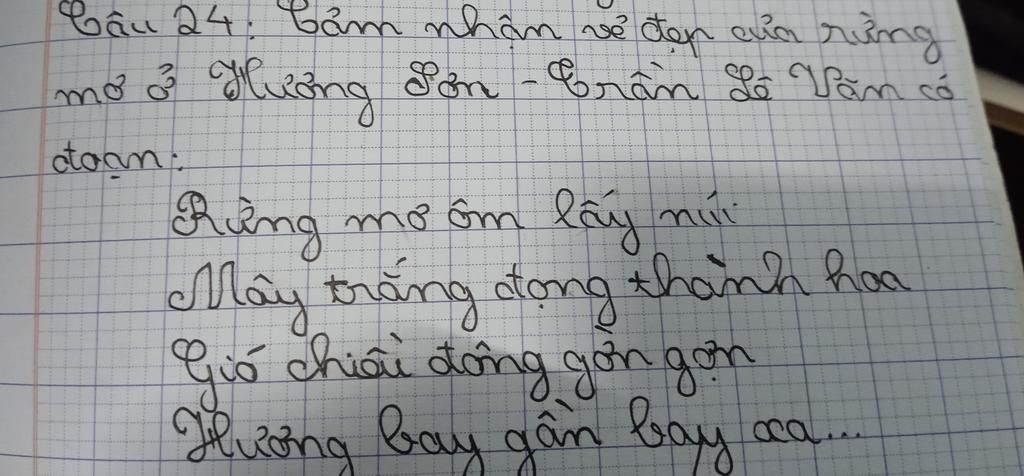 Câu 24: Cảm nhận vẻ đẹp của rừng
mơ ở Hương Sơn - Trần Lê Văn có
đoạn:
Rừng mơ ôm lấy núi
Mây trắng đọng thành hoa
Gió chiều đông gờn gợn
Hương bay gần bay xa...